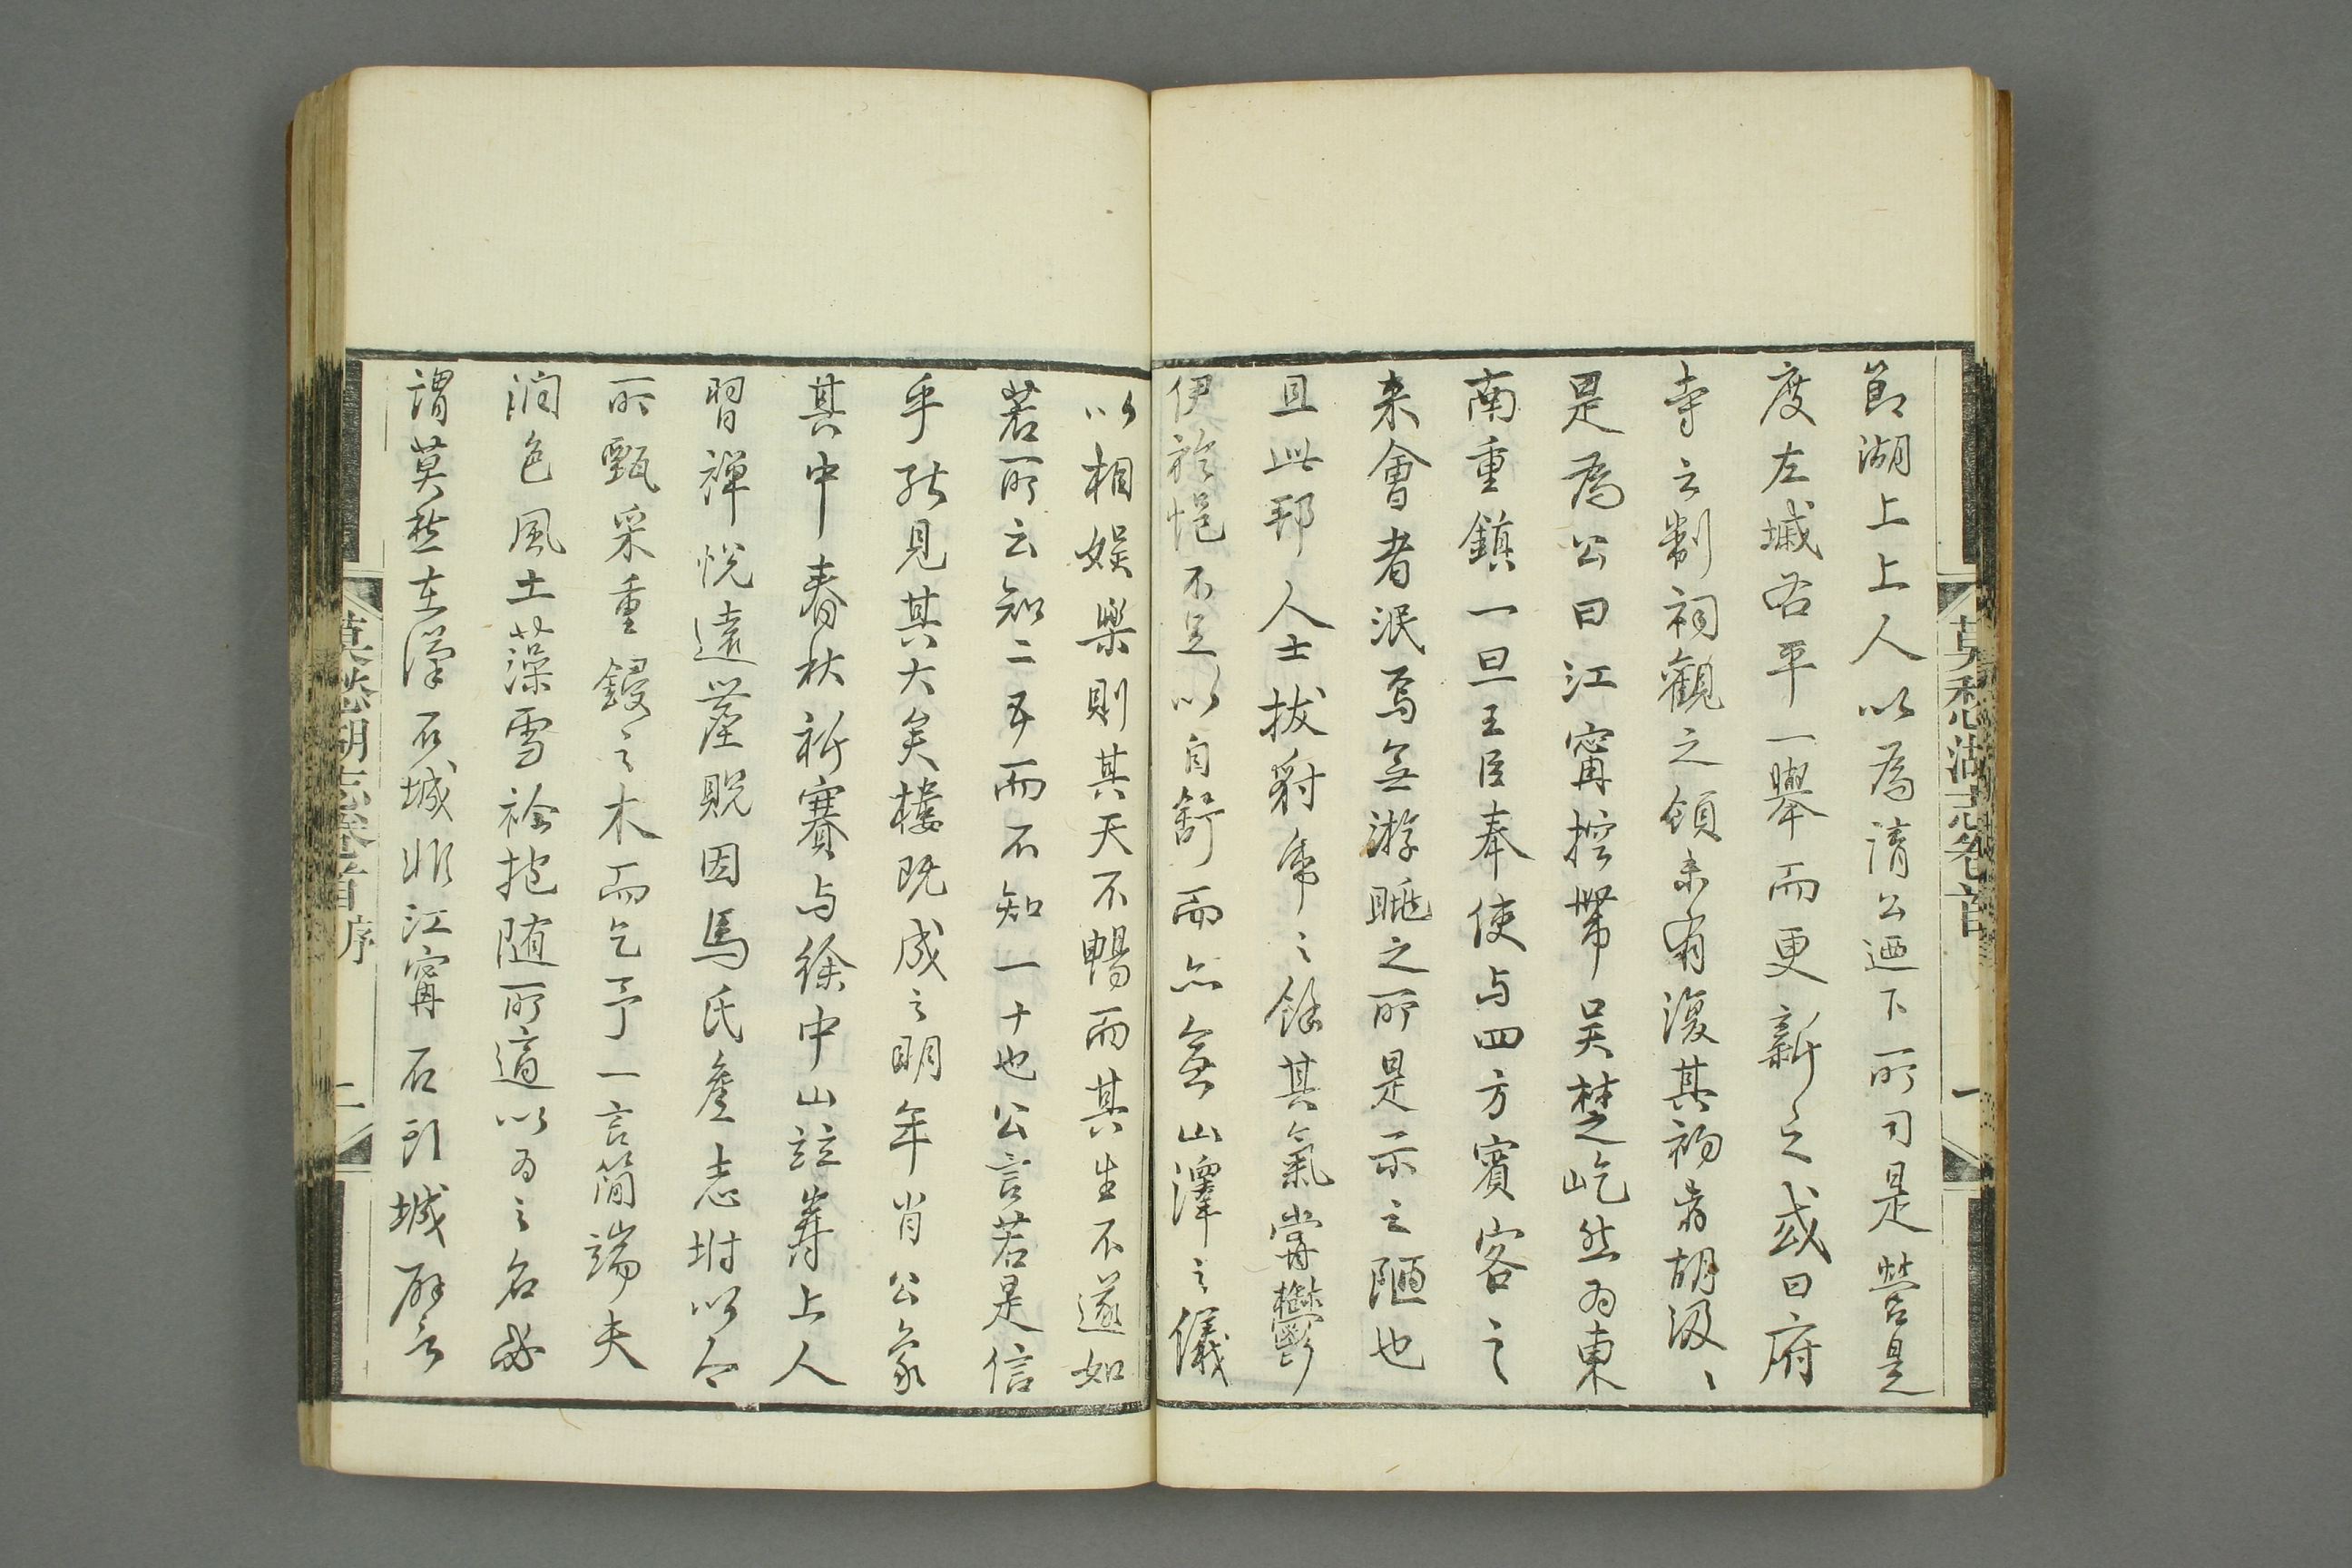 莫愁湖志卷首
一
節湖上上人以為請公迺下所司是營是
度左墄右平一舉而更新之或曰府
寺之制祠觀之領未有復其初者胡汲〻
是為公曰江甯控帶吳楚屹然为東
南重鎮一旦王臣奉使与四方賓客之
来會者泯焉無游眺之所是示之陋也
且此邦人士拔 帛之餘其氣常鬱
伊於悒不足以自舒而亦無山澤之儀
以相娛樂則其天不暢而其生不遂如
若所云知二五而不知一十也公言若是信
乎能見其大矣樓既成之明年肖公象
其中春秋祈賽与徐中山竝 上人
習禪悅遠塵 因馬氏 志坿以今
所甄采重鋟之木而乞予一言簡端夫
润色風土藻雪襟抱随所適以为之名必
謂莫愁在漢石城非江甯石頭城 言
莫愁湖志卷首序
二